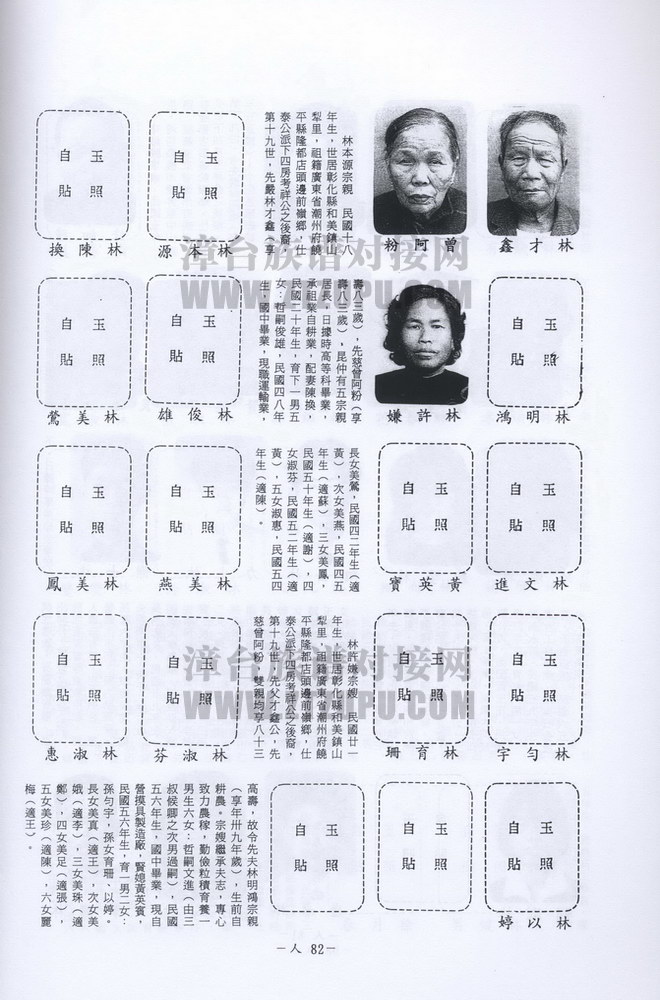 林才鑫
曾阿粉
林本源宗親　民國十八
年生，世居彰化縣和美鎮山
犁里，祖籍廣東省潮州府饒
平縣隆都店頭邊前嶺鄉，仕
泰公派下四房考祥公之後裔，
第十九世，先嚴林才鑫（享
玉照
自貼
林本源
玉照
自貼
林陳換
玉照
自貼
林明鴻
林許嫌
壽八三歲），先慈曾阿粉（享
壽八三歲），昆仲有五宗親
居長，日據時高等科畢業，
承祖業自耕業，配妻陳換，
民國二十年生，育下一男五
女：哲嗣俊雄，民國四八年
生，國中畢業，現職運輸業，
玉照
自貼
林俊雄
玉照
自貼
林美鶯
玉照
自貼
林文進
玉照
自貼
黃英寶
長女美鶯，民國四二年生（適
黃），次女美燕，民國四五
年生（適蘇），三女美鳳，
民國五十年生（適謝），四
女淑芬，民國五二年生（適
黃），五女淑惠，民國五四
年生（適陳）。
玉照
自貼
林美燕
玉照
自貼
林美鳳
玉照
自貼
林勻宇
玉照
自貼
林育珊
林許嫌宗嫂　民國廿一
年生，世居彰化縣和美鎮山
犁里，祖籍廣東省潮州府饒
平縣隆都店頭邊前嶺鄉，仕
泰公派下四房考祥公之後裔，
第十九世，先父才鑫公，先
慈曾阿粉，雙親均享八十三
玉照
自貼
林淑芬
玉照
自貼
林淑惠
玉照
自貼
林以婷
玉照
自貼
玉照
自貼
高壽，故令先夫林明鴻宗親
（享年卅九年歲），生前自
耕農。宗嫂繼承夫志，專心
致力農稼，勤儉粒積育養一
男生六女：哲嗣文進（由三
叔候卿之次男過嗣），民國
五六年生，國中畢業，現自
營摸具製造廠，賢媳黃英賓，
民國五六年生，育一男二女：
孫勻宇，孫女育珊、以婷。
長女美真（適王），次女美
娥（適李），三女美珠（適
鄭），四女美足（適張），
五女美珍（適陳），六女麗
梅（適王）。
－人 82－
漳台族谱对接网
漳台族谱对接网